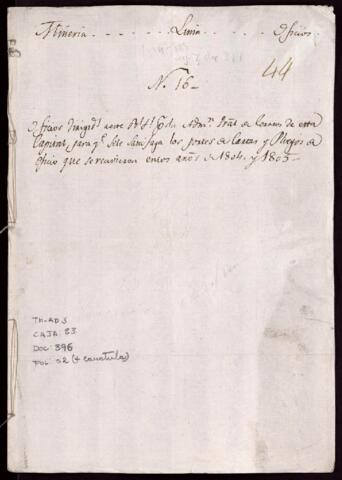 Mineria Lima Oficios
44
N. 16
Oficios dirigid.s a este R.l T.l p.r el Adm.r Gral de Correos de esta
Capital, para q.e se le satisfaga los portes de Cartas y Pliegos de
oficio que se recivieron en los años de 1804. y 1805
TM-AD 3
CAJA: 33
DOC: 396
FOL: 02 (+ caratula)